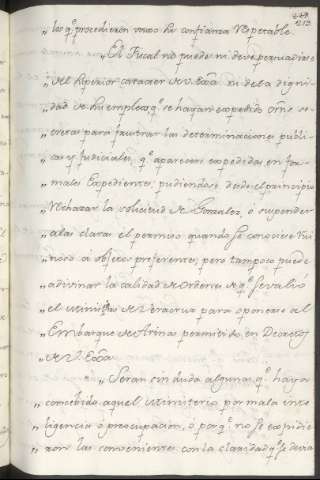 212
„ los q.e procedieron vuro su confianza respetable.
„ El Fiscal no puede, ni deve persuadirse
„ del superior caracter de V. Exca. ni de la digni
„ dad de su empleo, q.e se hayan expedido orns. se
„ cretas para frustrar las determinaciones publi
„ cas y judiciales, q.e aparecen expedidas en for
„ males Expedientes, pudiendose desde el principio
„ rechazar la solicitud de Gonzalez, ó suspender
„ a las claras el permiso quando se conoviere
„ nuos a objetos preferentes, pero tampoco puede
„ adivinar la calidad de ordenes de q.e se valió
„ el Ministro de Veracruz para oponerse al
„ Embarque de Arinas permitido en Decretos
„ de V. Exca.
„ Seran sin duda algunas q.e haya
„ concebido aquel Ministerio por mala inte
„ ligencia ó preocupacion, ó por q.e no se expidie
„ ron las convenientes con la claridad q.e se devia